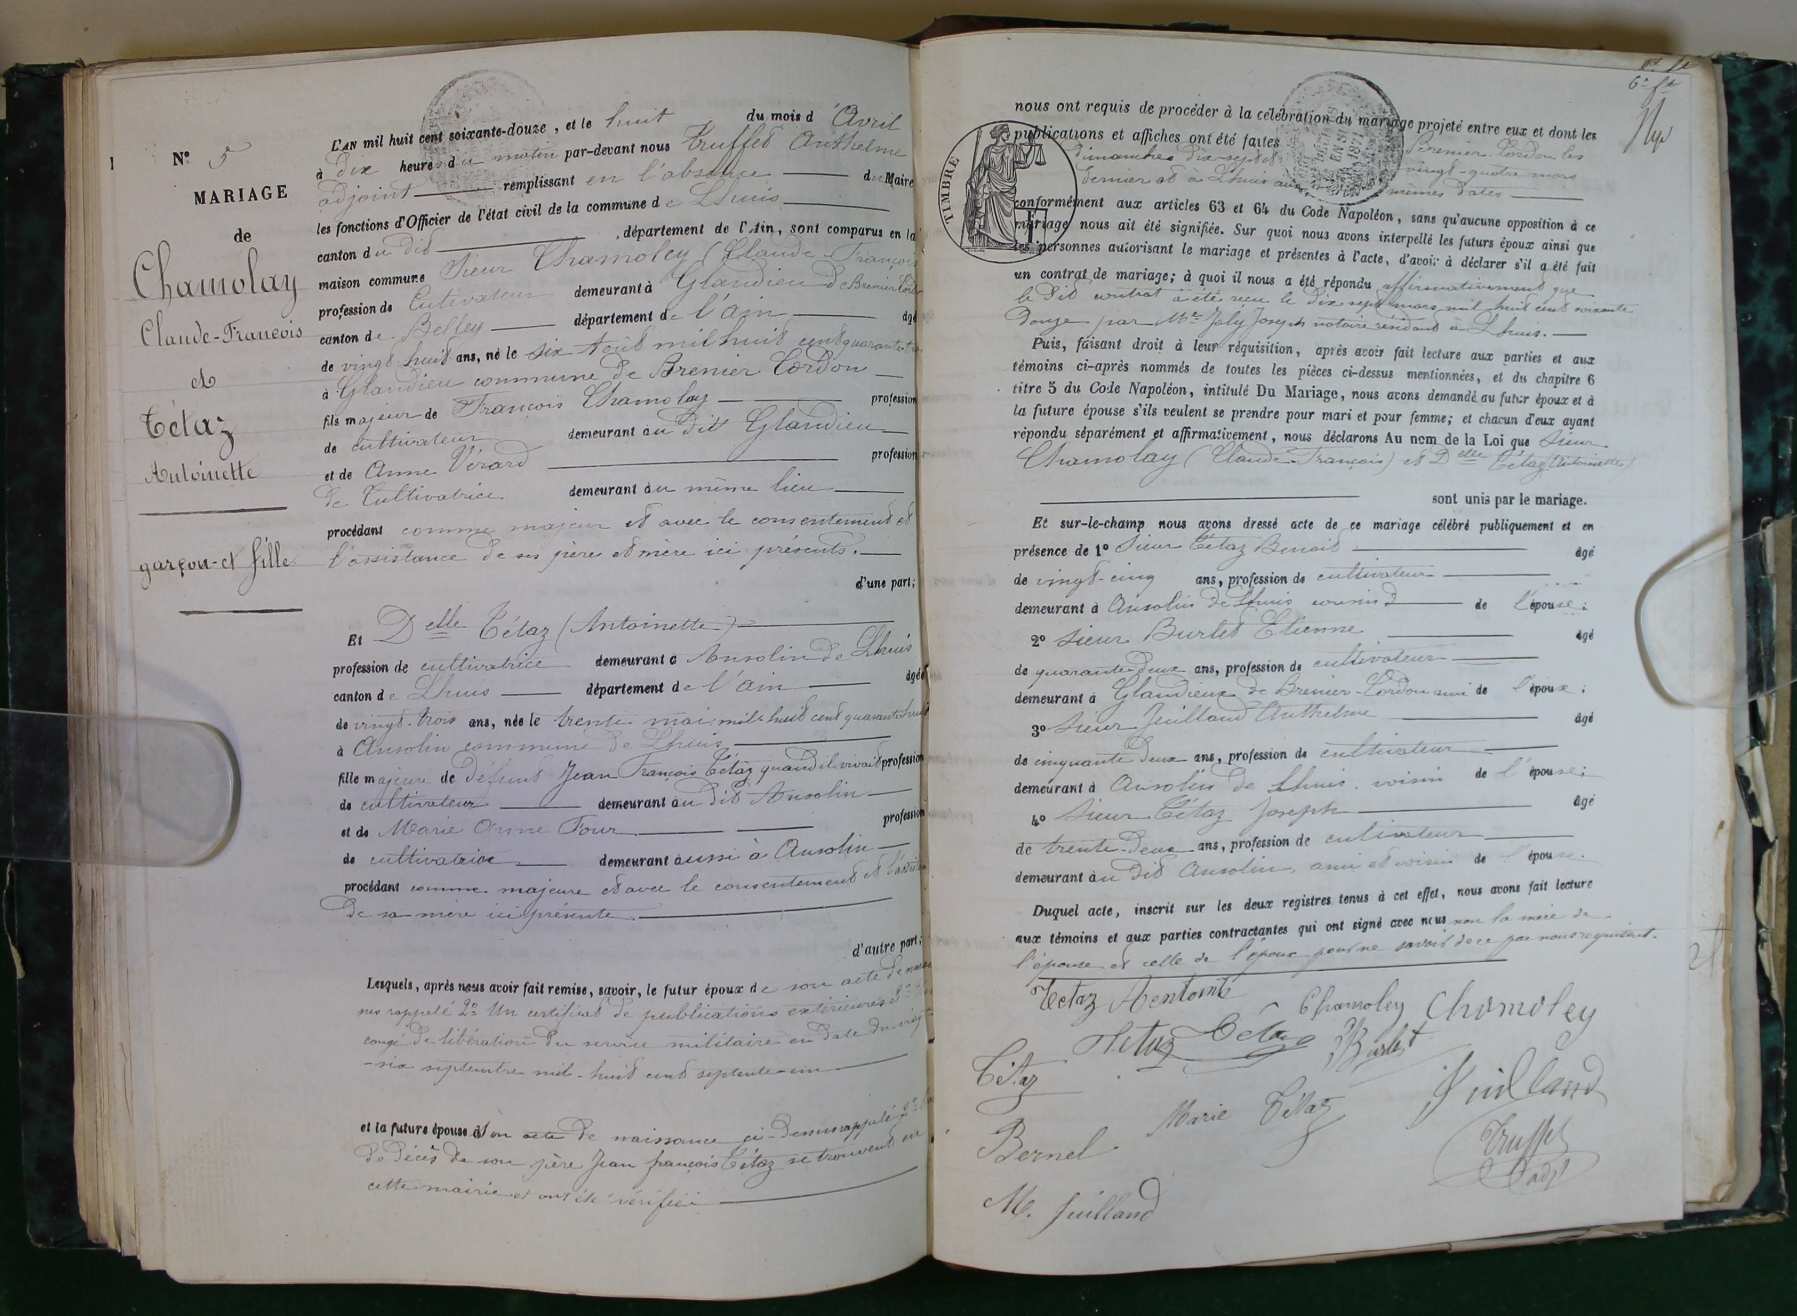 N° 5
MARIAGE
de
Chamolay
Claude-François
et
Tétaz
Antoinette
garçon et fille
L'AN mil huit cent soixante-douze, et le huit du mois d'Avril
à Dix heures du matin par-devant nous Truffet Anthelme
adjoint remplissant en l'absence du Maire
les fonctions d'Officier de l'état civil de la commune de Lhuis
canton du dit, département de l'Ain, sont comparus en la
maison commune Sieur Chamoley (Claude François
profession de Cultivateur demeurant à Glandieu de Brenier Cordon
canton de Belley département de l'ain âgé
de vingt huit ans, né le six Août mil huit cent quarante trois
à Glandieu commune de Brenier Cordon
fils majeur de François Chamolay profession
de cultivateur demeurant au dit Glandieu
et de Anne Vérard profession
de Cultivatrice demeurant au même lieu
procédant comme majeur et avec le consentement et
l'assistance de ses père et mère ici présents.
d'une part;
Et Delle Tétaz (Antoinette)
profession de cultivatrice demeurant à Ansolin de Lhuis
canton de Lhuis département de l'ain âgée
de vingt-trois ans, née le trente mai mil huit cent quarante huit
à Ansolin commune de Lhuis
fille majeure de défunt Jean François Tétaz quand il vivait profession
de cultivateur demeurant au dit Ansolin
et de Marie Anne Four profession
de cultivatrice demeurant aussi à Ansolin
procédant comme majeure et avec le consentement et l'assistance
de sa mère ici présente.
d'autre part;
Lesquels, après nous avoir fait remise, savoir, le futur époux de son acte de
rappelé 2° Un certificat de publications extérieures et
congé de libération du service militaire en date du vingt
-six septembre mil-huit cent septente-un
et la future épouse d'son acte de naissance ci-dessus rappelé 2°
de décès de son père Jean françois Tétaz se trouvent en
cette mairie et ont été vérifiés
6e ft
nous ont requis de procéder à la célébration du mariage projeté entre eux et dont les
publications et affiches ont été faites Brenier-Cordon les
dimanches dix-sept et vingt-quatre mars
dernier et à Lhuis aux mêmes dates
TIMBRE
conformément aux articles 63 et 64 du Code Napoléon, sans qu'aucune opposition à ce
mariage nous ait été signifiée. Sur quoi nous avons interpellé les futurs époux ainsi que
les personnes autorisant le mariage et présentes à l'acte, d'avoir à déclarer s'il a été fait
un contrat de mariage; à quoi il nous a été répondu affirmativement que
le dit contrat a été reçu le dix sept mars mil huit cent soixante
douze par Mtre Joly Joseph notaire résidant à Lhuis.
Puis, faisant droit à leur réquisition, après avoir fait lecture aux parties et aux
témoins ci-après nommés de toutes les pièces ci-dessus mentionnées, et du chapitre 6
titre 5 du Code Napoléon, intitulé Du Mariage, nous avons demandé au futur époux et à
la future épouse s'ils veulent se prendre pour mari et pour femme; et chacun d'eux ayant
répondu séparément et affirmativement, nous déclarons Au nom de la Loi que Sieur
Chamolay (Claude-François) et Delle Tétaz (Antoinette)
sont unis par le mariage.
Et sur-le-champ nous avons dressé acte de ce mariage célébré publiquement et en
présence de 1° Sieur Tétaz Benoit âgé
de vingt-cinq ans, profession de cultivateur
demeurant à Ansolin de Lhuis cousin de l'épouse;
2° Sieur Burlet Etienne âgé
de quarante-deux ans, profession de cultivateur
demeurant à Glandieux de Brenier-Cordon ami de l'époux;
3° Sieur Juilland Anthelme âgé
de cinquante deux ans, profession de cultivateur
demeurant à Ansolin de Lhuis voisin de l'épouse;
4° Sieur Tétaz Joseph âgé
de trente-deux ans, profession de cultivateur
demeurant au dit Ansolin, ami et voisin de l'épouse.
Duquel acte, inscrit sur les deux registres tenus à cet effet, nous avons fait lecture
aux témoins et aux parties contractantes qui ont signé avec nous non la mère de
l'épouse et celle de l'époux pour ne savoir de ce par nous requis.
Tetaz Chamoley Chomoley
Tetaz Tétaz Burlet
Tétaz Juilland
Marie Tétaz
Bernel Truffet
adjt
M. Juilland